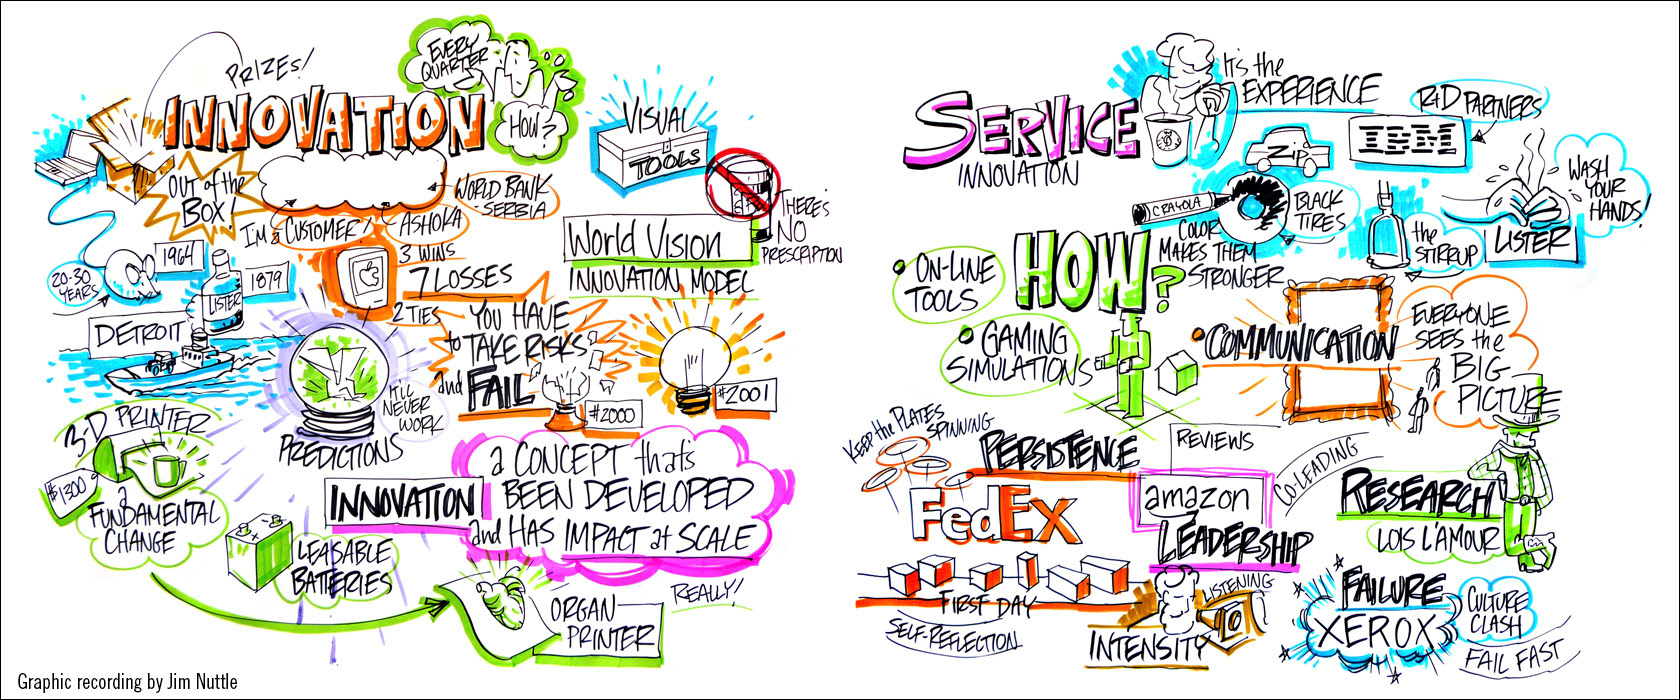 PRIZES!
EVERY
QUARTER
HOW?
INNOVATION
OUT of the
BOX!
WORLD BANK
SERBIA
I'm a CUSTOMER!
ASHOKA
3 WINS
7 LOSSES
2 TIES
20-30
YEARS
1964
1879
LISTER
DETROIT
YOU HAVE
to TAKE RISKS
and FAIL
#2000
#2001
IT'LL
NEVER
WORK
PREDICTIONS
VISUAL
TOOLS
THERE'S
NO
PRESCRIPTION
World Vision
INNOVATION MODEL
3-D PRINTER
$1300
a
FUNDAMENTAL
CHANGE
LEASABLE
BATTERIES
INNOVATION
a CONCEPT that's
BEEN DEVELOPED
and HAS IMPACT at SCALE
ORGAN
PRINTER
REALLY!
Graphic recording by Jim Nuttle
SERVICE
INNOVATION
It's the
EXPERIENCE
R+D PARTNERS
IBM
ZIP
CRAYOLA
BLACK
TIRES
COLOR
MAKES THEM
STRONGER
the
STIRRUP
LISTER
WASH
YOUR
HANDS!
HOW?
• ON-LINE
TOOLS
• GAMING
SIMULATIONS
• COMMUNICATION
EVERYONE
SEES the
BIG
PICTURE
KEEP the PLATES
SPINNING
PERSISTENCE
FedEx
FIRST DAY
SELF-REFLECTION
REVIEWS
amazon
LEADERSHIP
CO-LEADING
LISTENING
INTENSITY
RESEARCH
LOIS L'AMOUR
FAILURE
XEROX
CULTURE
CLASH
FAIL FAST